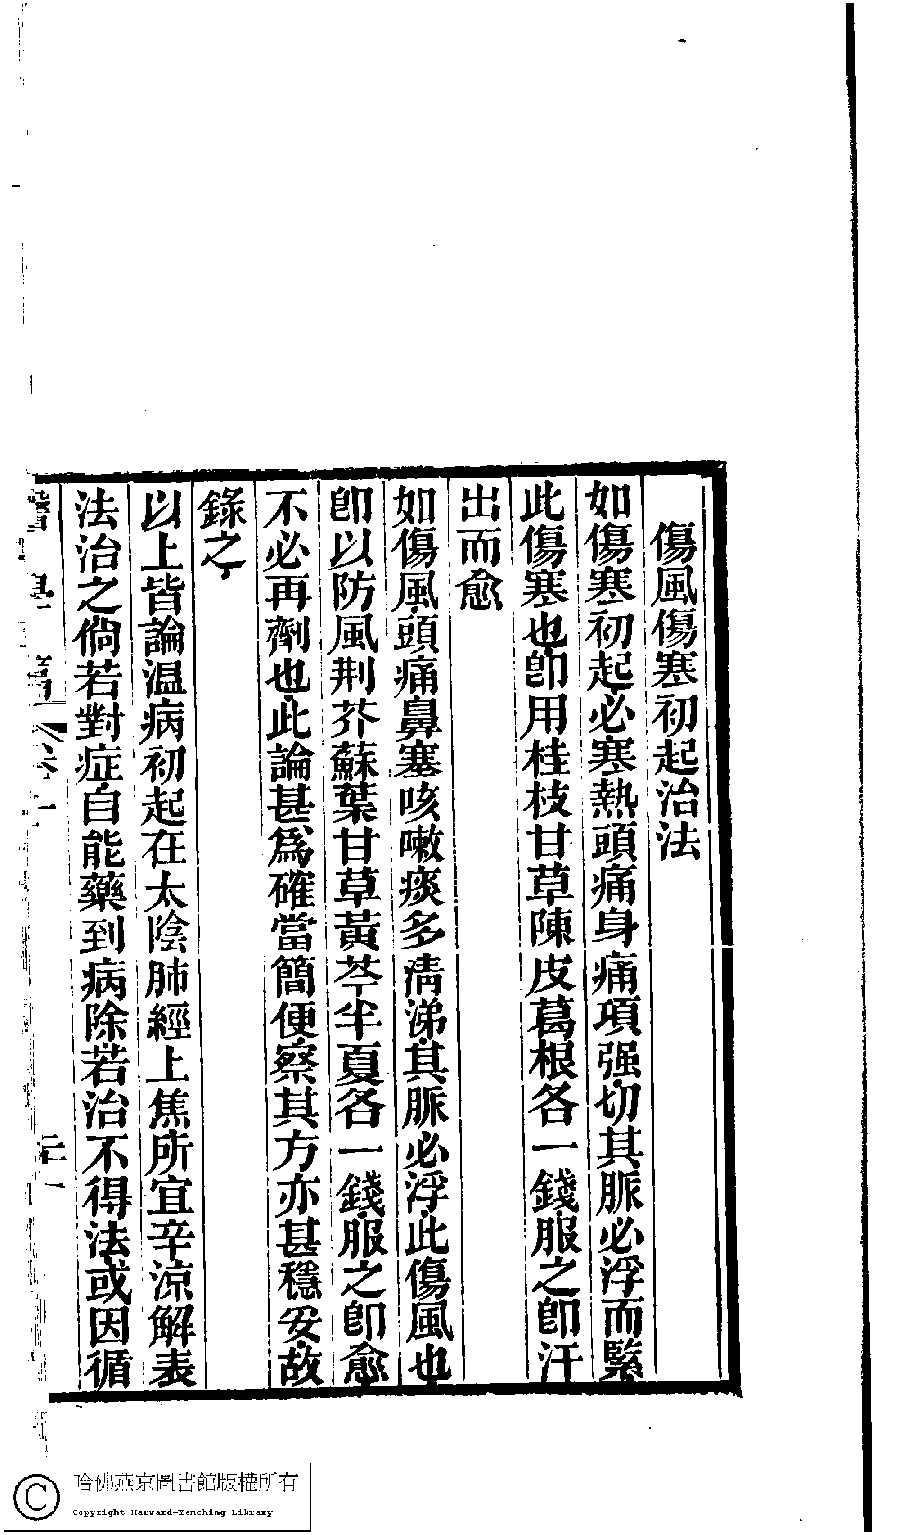 傷風傷寒初起治法
如傷寒初起必寒熱頭痛身痛項强切其脈必浮而緊
此傷寒也卽用桂枝甘草陳皮葛根各一錢服之卽汗
出而愈
如傷風頭痛鼻塞咳嗽痰多淸涕其脈必浮此傷風也
卽以防風荆芥蘇葉甘草黃芩半夏各一錢服之卽愈
不必再劑也此論甚爲確當簡便察其方亦甚穩妥故
錄之
以上皆論温病初起在太陰肺經上焦所宜辛涼解表
法治之倘若對症自能藥到病除若治不得法或因循
卷一
哈佛燕京圖書館版權所有
Copyright Harvard-Yenching Library